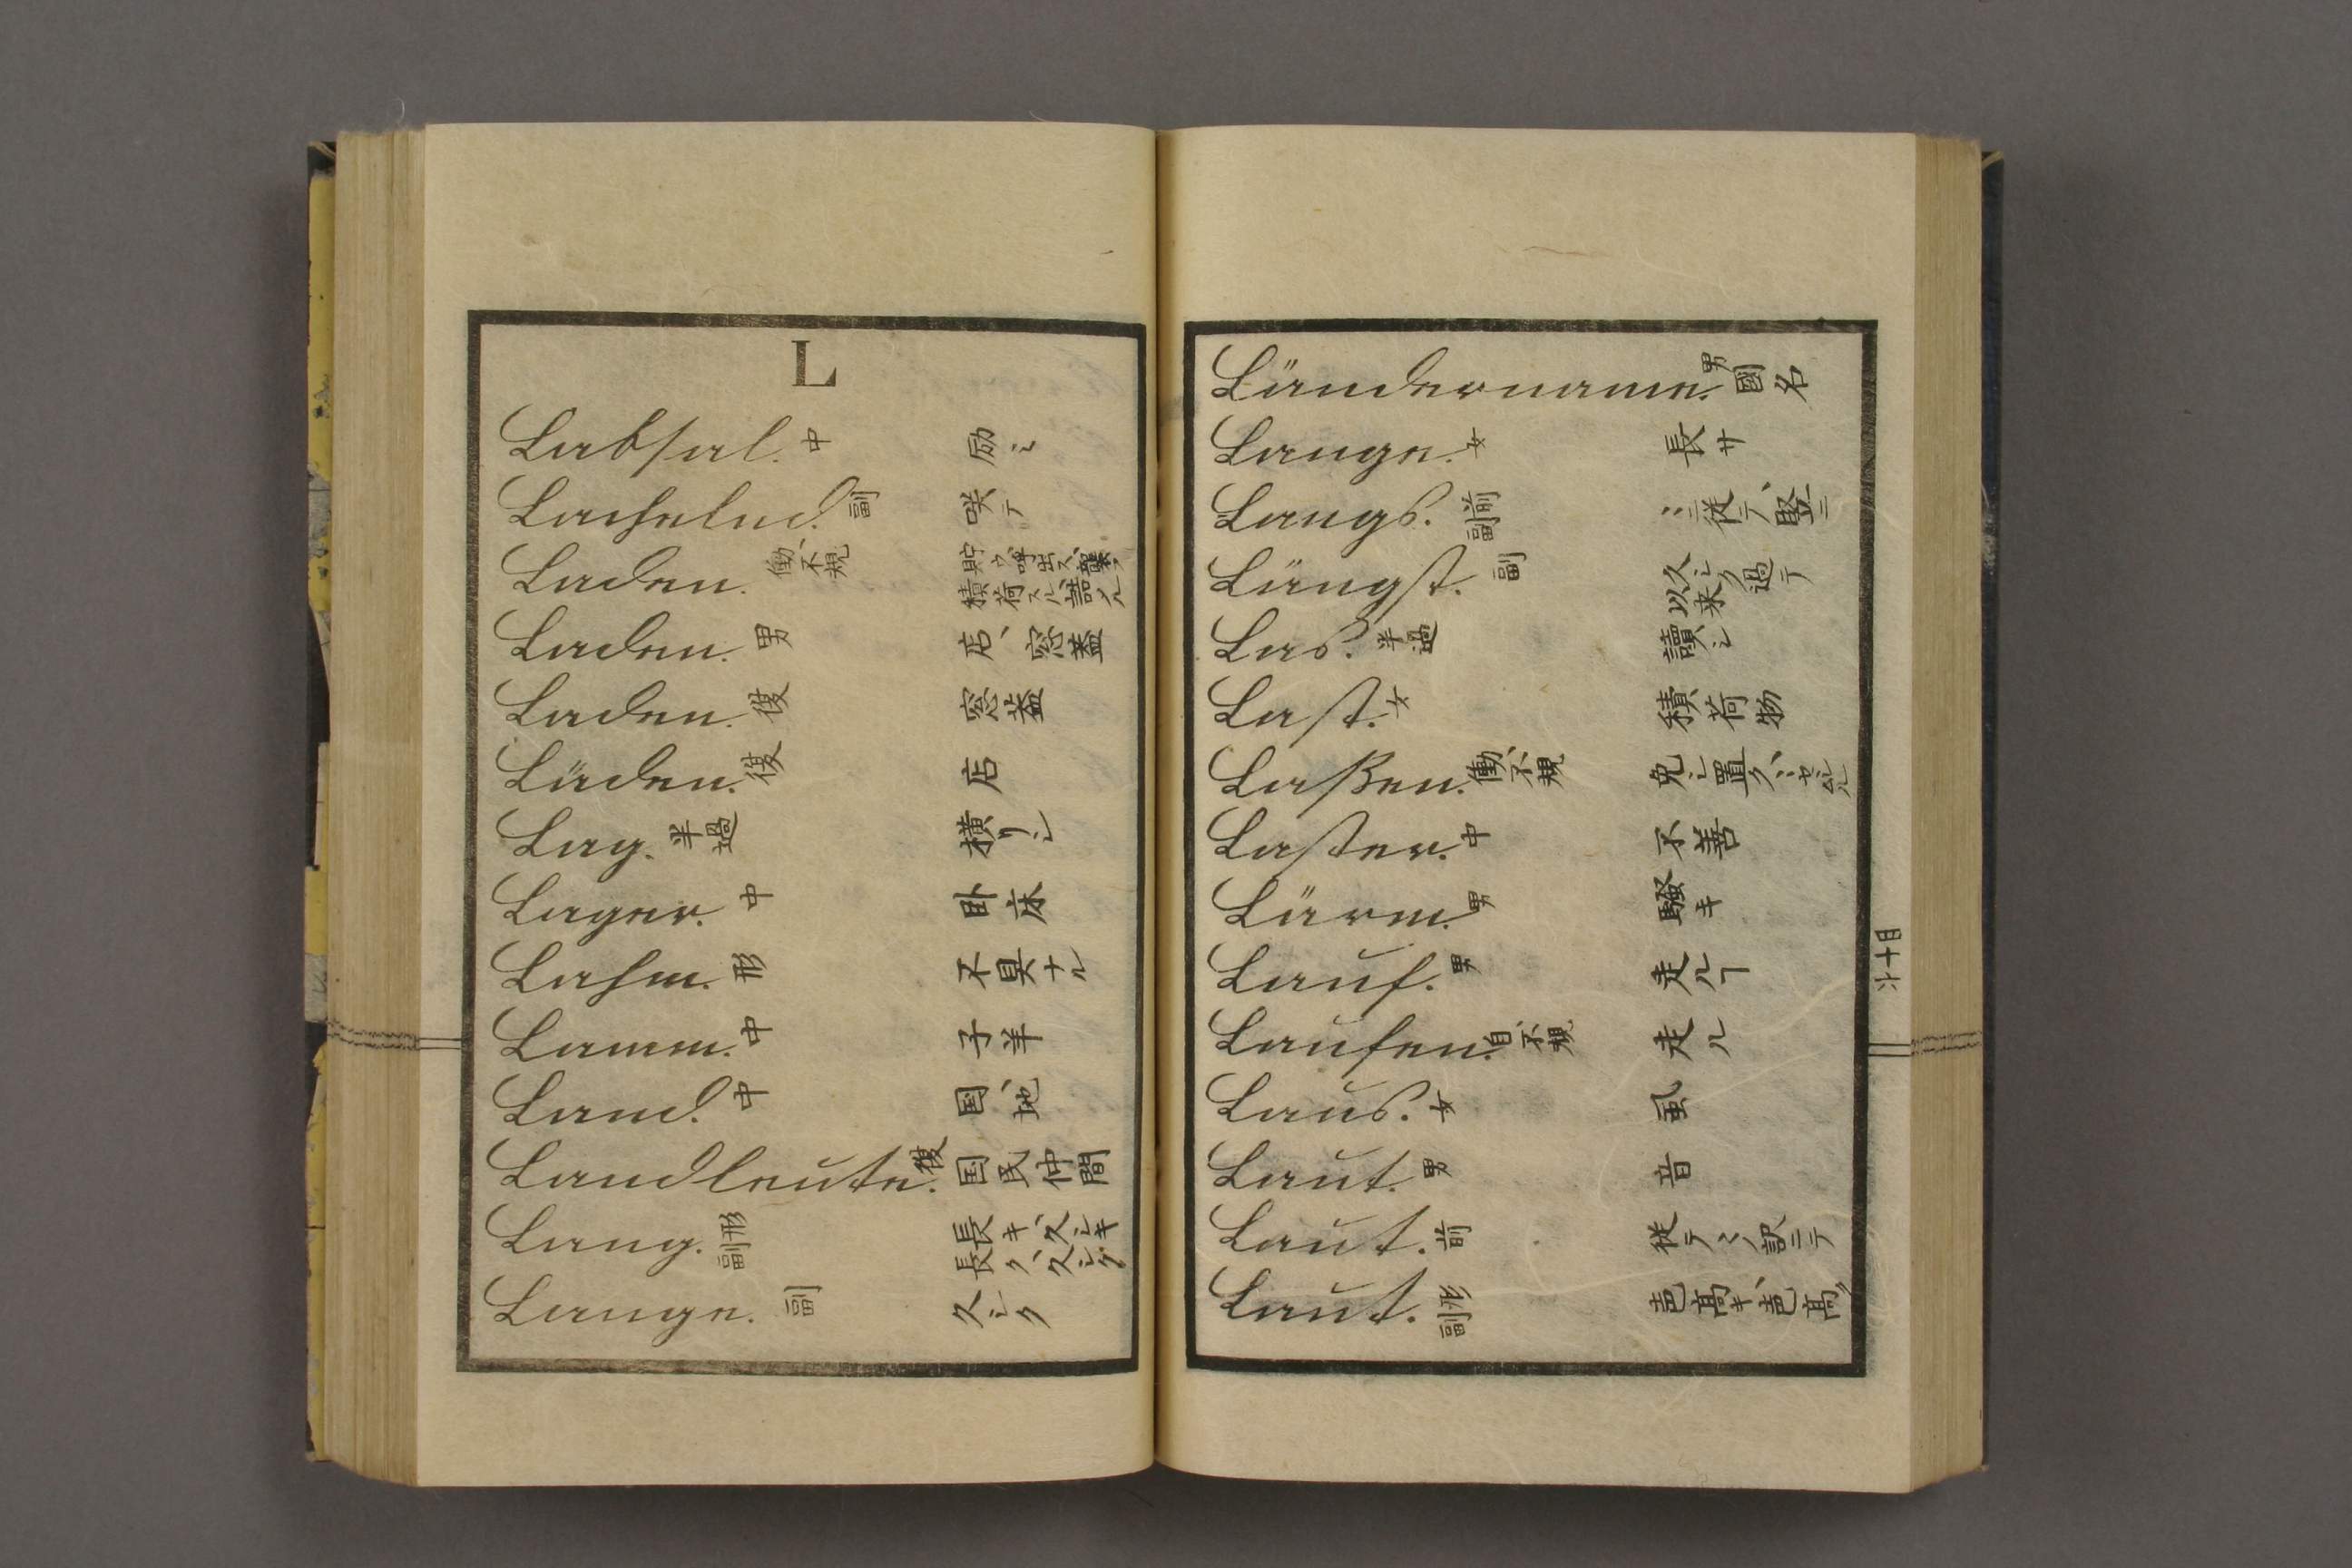 L
Labsal. 中 励ミ
Lachelnd. 副 咲テ
Laden. 働、不規 貯フ、呼出ス、襲フル 積荷スル、
Laden. 男 店、窓蓋
Laden. 復 窓蓋
Läden. 復 店
Lag. 半過 横リシ
Lager. 中 卧床
Lahm. 形 不具ナル
Lamm. 中 子羊
Land. 中 国、地
Landleute. 復 国民仲間
Lang. 形副 長キ、久シキ 長ク、久シク
Lange. 副 久シク
Ländername. 男 國名
Lange. 女 長サ
Langs. 前副 ‥ニ従テ、竪ニ
Längst. 副 久シク過テ 以来
Las. 半過 讀ミシ
Last. 女 積荷物
Laßen. 働、不規 免シ置ク、‥セシムル
Laster. 中 不善
Lärm. 男 騒キ
Lauf. 男 走ルヿ
Laufen. 自、不規 走ル
Laus. 女 虱
Laut. 男 音
Laut. 前 従テ、ノ訳ニテ
Laut. 形副 音高キ、音高ク